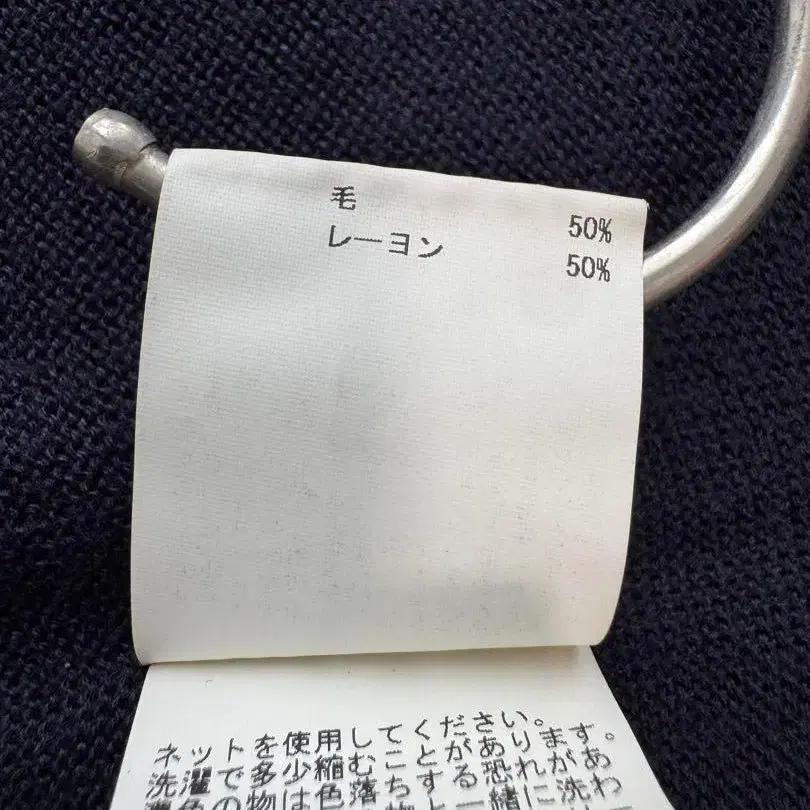 毛 50%
レーヨン 50%
ネットを使用してください。
洗濯で多少縮むことがあります。
濃色の物は色落ちする恐れがあ
物と一緒に洗わ